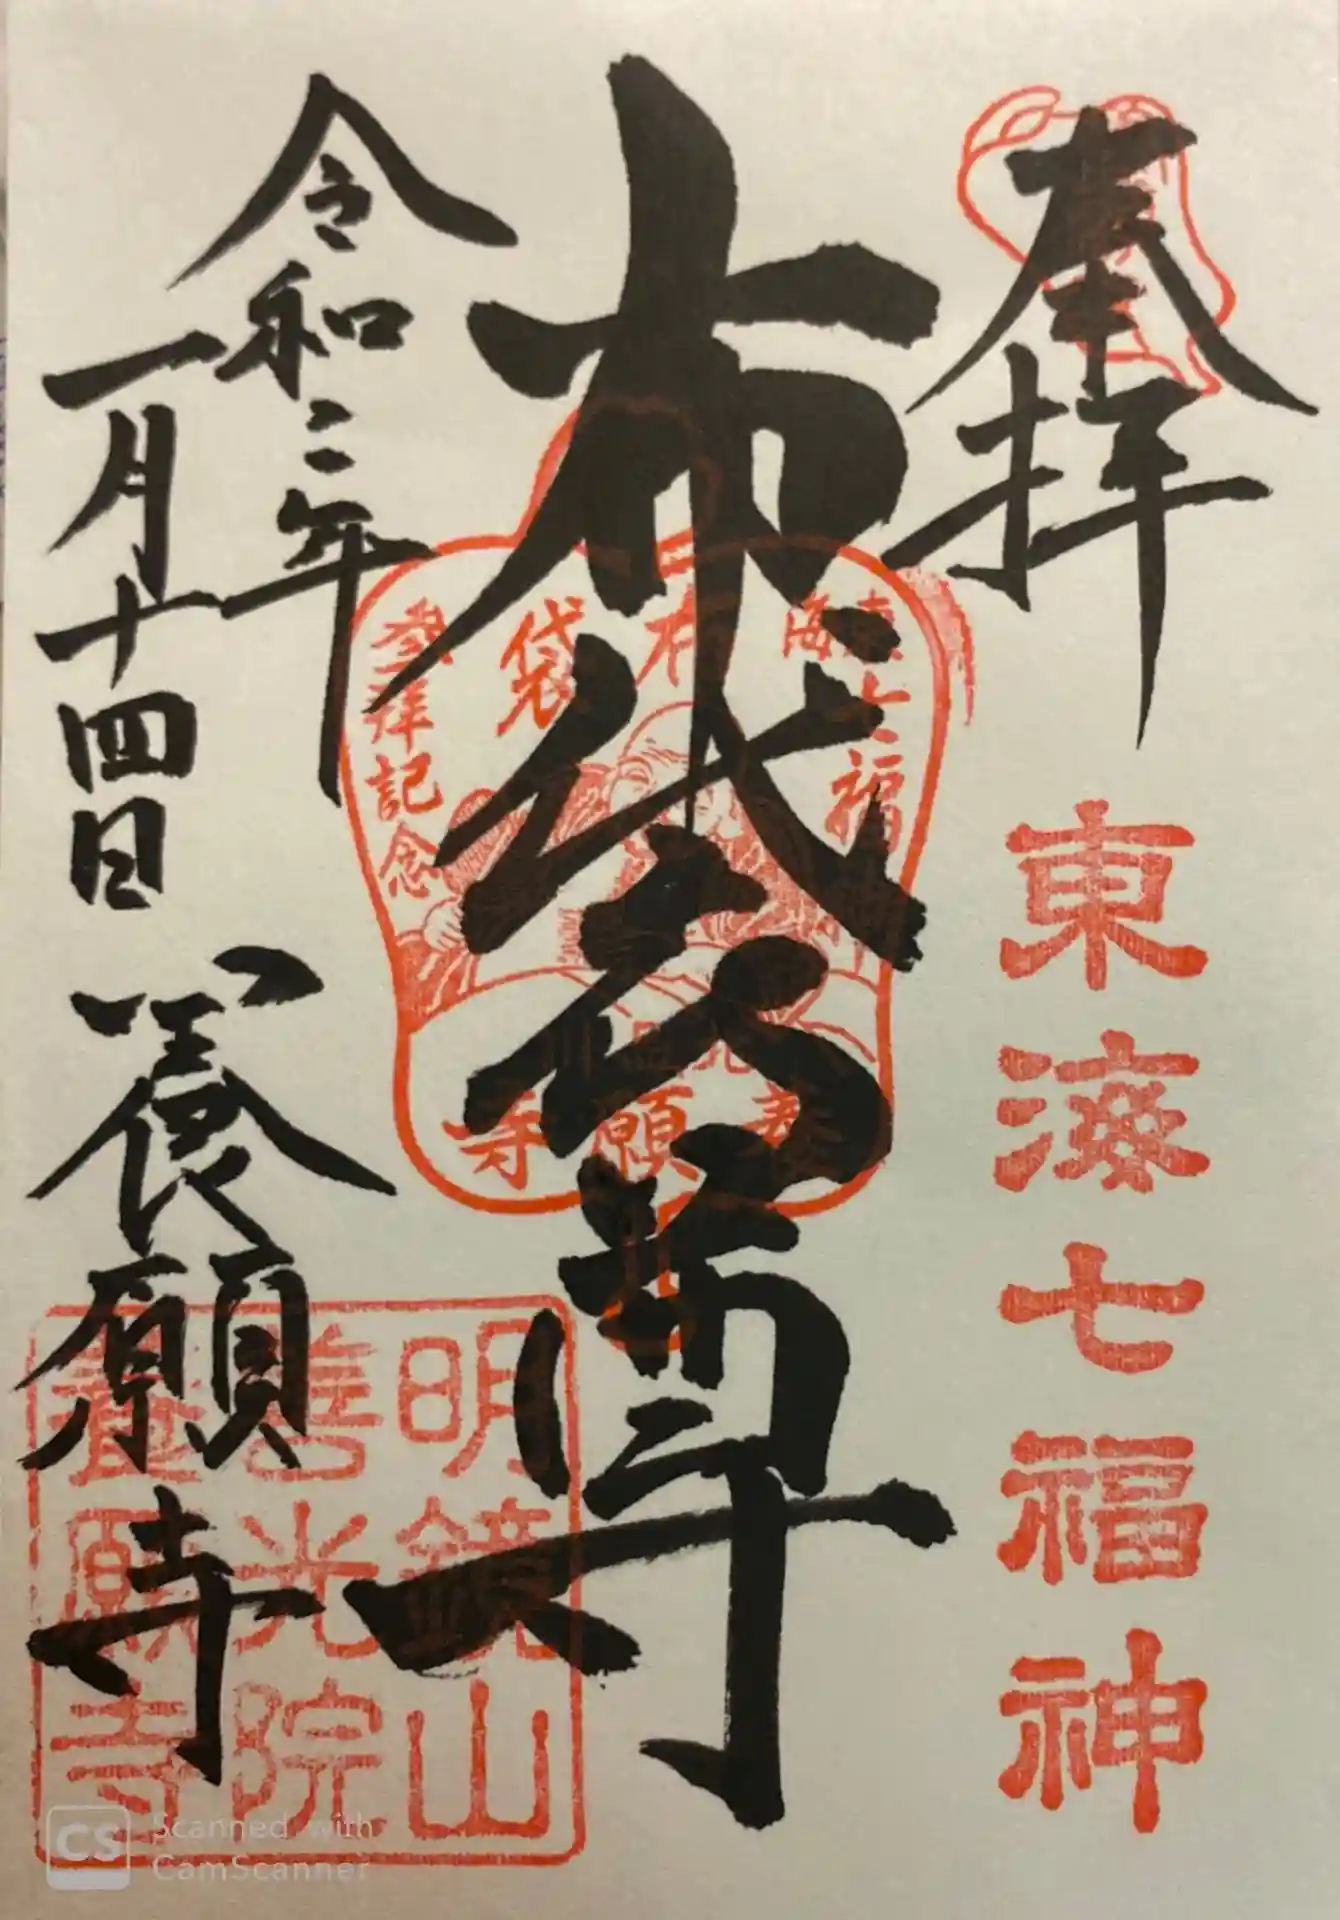 奉拝
東海七福神
布袋尊
東海七福神
布袋
参拝記念
養願寺
令和二年
一月十四日
養願寺
明鏡山
善光院
養願寺
CS Scanned with
CamScanner